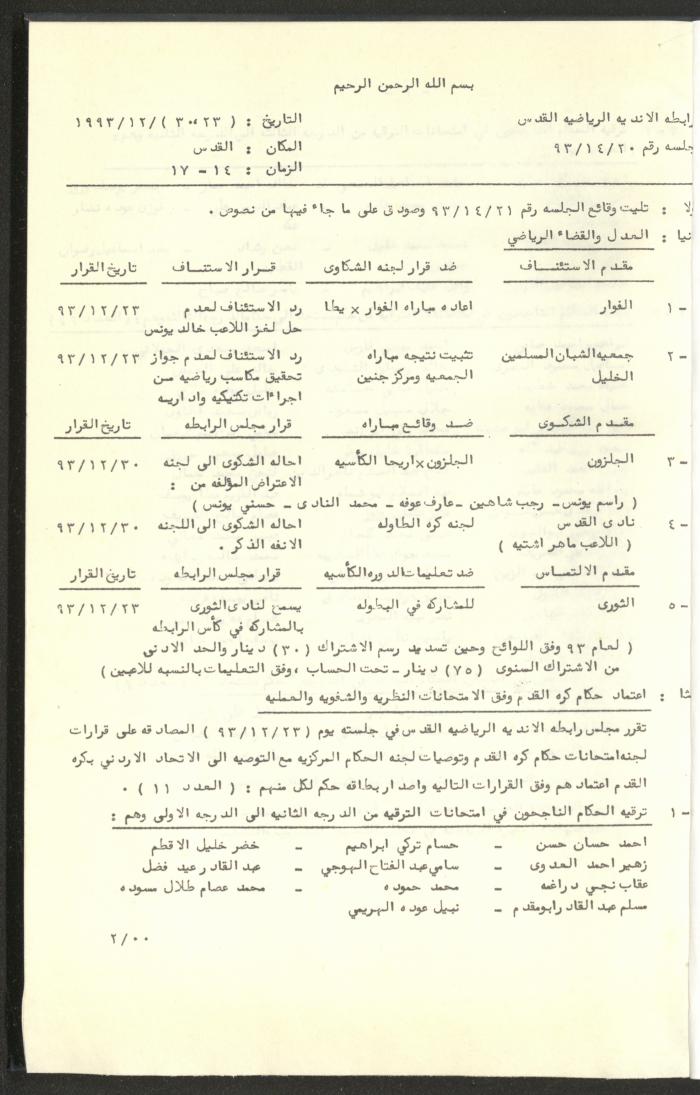 بسم الله الرحمن الرحيم
رابطه الانديه الرياضيه القدس التاريخ : ( ٣٠،٢٣ )/١٩٩٣/١٢
جلسه رقم ٩٣/١٤/٢٠ المكان : القدس
الزمان : ١٤ - ١٧
ولا : تليت وقائع الجلسه رقم ٩٣/١٤/٢١ وصودق على ما جاء فيها من نصوص .
نيا : العدل والقضاء الرياضي
مقدم الاستئناف ضد قرار لجنه الشكاوى قرار الاستناف تاريخ القرار
١ - الفوار اعاده مباراه الفوار × يطا رد الاستئناف لعدم ٩٣/١٢/٢٣
حل لغز اللاعب خالد يونس
٢ - جمعيه الشبان المسلمين تثبيت نتيجه مباراه رد الاستئناف لعدم جواز ٩٣/١٢/٢٣
الخليل الجمعيه ومركز جنين تحقيق مكاسب رياضيه من
اجراءات تكتيكيه واداريه
مقدم الشكوى ضد وقائع مباراه قرار مجلس الرابطه تاريخ القرار
٣ - الجلزون الجلزون×اريحا الكأسيه احاله الشكوى الى لجنه ٩٣/١٢/٣٠
الاعتراض المؤلفه من :
( راسم يونس - رجب شاهين - عارف عوفه - محمد النادى - حسني يونس )
٤ - نادى القدس لجنه كره الطاوله احاله الشكوى الى اللجنه ٩٣/١٢/٣٠
( اللاعب ماهر اشتيه ) الانفه الذكر .
مقدم الالتماس ضد تعليمات الدوره الكأسيه قرار مجلس الرابطه تاريخ القرار
٥ - الثورى للمشاركه في البطوله يسمح لنادى الثورى ٩٣/١٢/٢٣
بالمشاركه في كأس الرابطه
( لعام ٩٣ وفق اللوائح وحين تسديد رسم الاشتراك (٣٠) دينار والحد الادنى
من الاشتراك السنوى (٧٥) دينار - تحت الحساب ،وفق التعليمات بالنسبه للاعبين )
لثا : اعتماد حكام كره القدم وفق الامتحانات النظريه والشفويه والعمليه
تقرر مجلس رابطه الانديه الرياضيه القدس في جلسته يوم (٩٣/١٢/٢٣ ) المصادقه على قرارات
لجنه امتحانات حكام كره القدم وتوصيات لجنه الحكام المركزيه مع التوصيه الى الاتحاد الاردني بكره
القدم اعتمادهم وفق القرارات التاليه واصدار بطاقه حكم لكل منهم : ( العدد ١١ ) .
١ - ترقيه الحكام الناجحون في امتحانات الترقيه من الدرجه الثانيه الى الدرجه الاولى وهم :
احمد حسان حسن - حسام تركي ابراهيم - خضر خليل الاقطم
زهير احمد العدوى - سامي عبد الفتاح الهوجي - عبد القادر عيد فضل
عقاب نجي دراغمه - محمد حموده - محمد عصام طلال مسوده
مسلم عبد القادر ابومقدم - نبيل عوده الهريمي
٢/٠٠